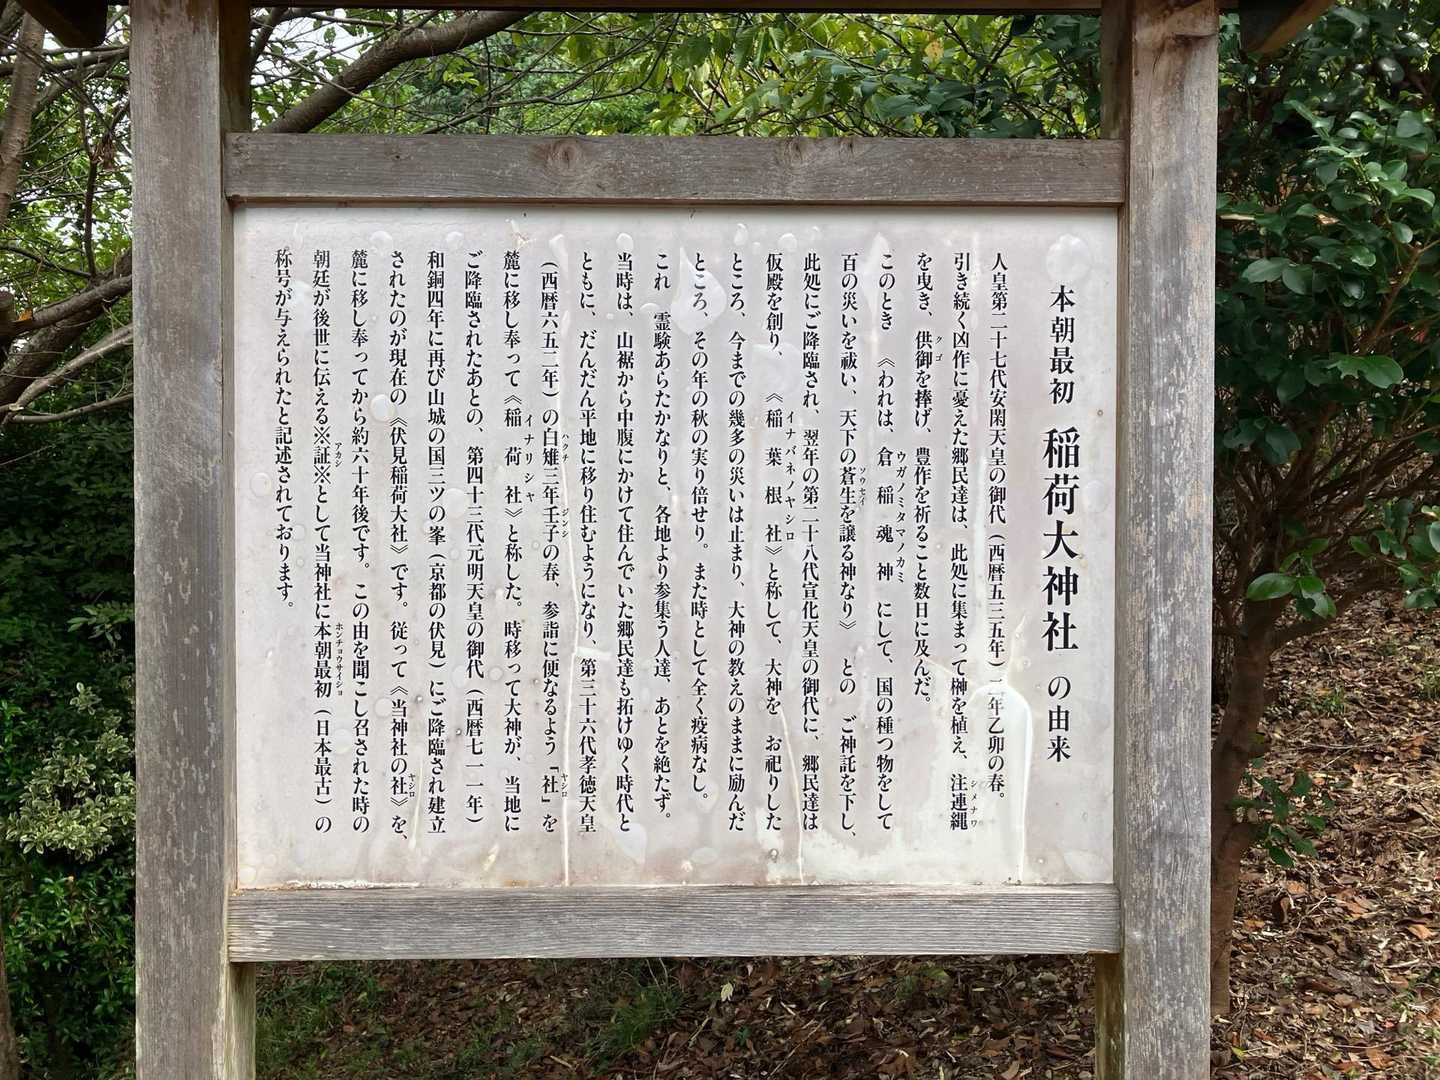 本朝最初 稲荷大神社 の由来
人皇第二十七代安閑天皇の御代（西暦五三五年）二年乙卯の春。
引き続く凶作に憂えた郷民達は、此処に集まって榊を植え、注連縄
シメナワ
を曳き、供御を捧げ、豊作を祈ること数日に及んだ。
クゴ
このとき 《われは、倉稲魂神 にして、国の種つ物をして
ウガノミタマノカミ
百の災いを祓い、天下の蒼生を譲る神なり》 との ご神託を下し、
ソウセイ
此処にご降臨され、翌年の第二十八代宣化天皇の御代に、郷民達は
仮殿を創り、 《稲葉根社》と称して、大神を お祀りした
イナバネノヤシロ
ところ、今までの幾多の災いは止まり、大神の教えのままに励んだ
ところ、その年の秋の実り倍せり。また時として全く疫病なし。
これ 霊験あらたかなりと、各地より参集う人達、あとを絶たず。
当時は、山裾から中腹にかけて住んでいた郷民達も拓けゆく時代と
ともに、だんだん平地に移り住むようになり、第三十六代孝徳天皇
（西暦六五二年）の白雉三年壬子の春、参詣に便なるよう「社」を
ハクチ ジンシ ヤシロ
麓に移し奉って《稲荷社》と称した。時移って大神が、当地に
イナリシャ
ご降臨されたあとの、第四十三代元明天皇の御代（西暦七一一年）
和銅四年に再び山城の国三ツの峯（京都の伏見）にご降臨され建立
されたのが現在の《伏見稲荷大社》です。従って《当神社の社》を、
ヤシロ
麓に移し奉ってから約六十年後です。この由を聞こし召された時の
朝廷が後世に伝える※証※として当神社に本朝最初（日本最古）の
アカシ ホンチョウサイショ
称号が与えられたと記述されております。